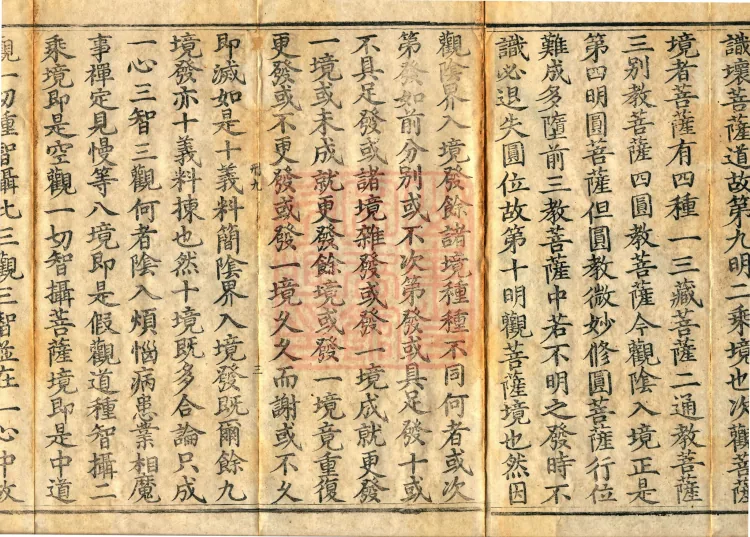 識壞菩薩道故第九明二乘境也次觀菩薩
境者菩薩有四種一三藏菩薩二通教菩薩
三別教菩薩四圓教菩薩今觀陰入境正是
第四明圓菩薩但圓教微妙修圓菩薩行位
難成多墮前三教菩薩中若不明之發時不
識必退失圓位故第十明觀菩薩境也然因
觀陰界入境發餘諸境種種不同何者或次
第發如前分別或不次第發或具足發十或
不具足發或諸境雜發或發一境成就更發
一境或未成就更發餘境或發一境竟重復
更發或不更發或發一境久久而謝或不久
刑九
三
即滅如是十義料簡陰界入境發既爾餘九
境發亦十義料揀也然十境既多合論只成
一心三智三觀何者陰入煩惱病患業相魔
事禪定見慢等八境即是假觀道種智攝二
乘境即是空觀一切智攝菩薩境即是中道
觀一切種智攝此三觀三智並在一心中故